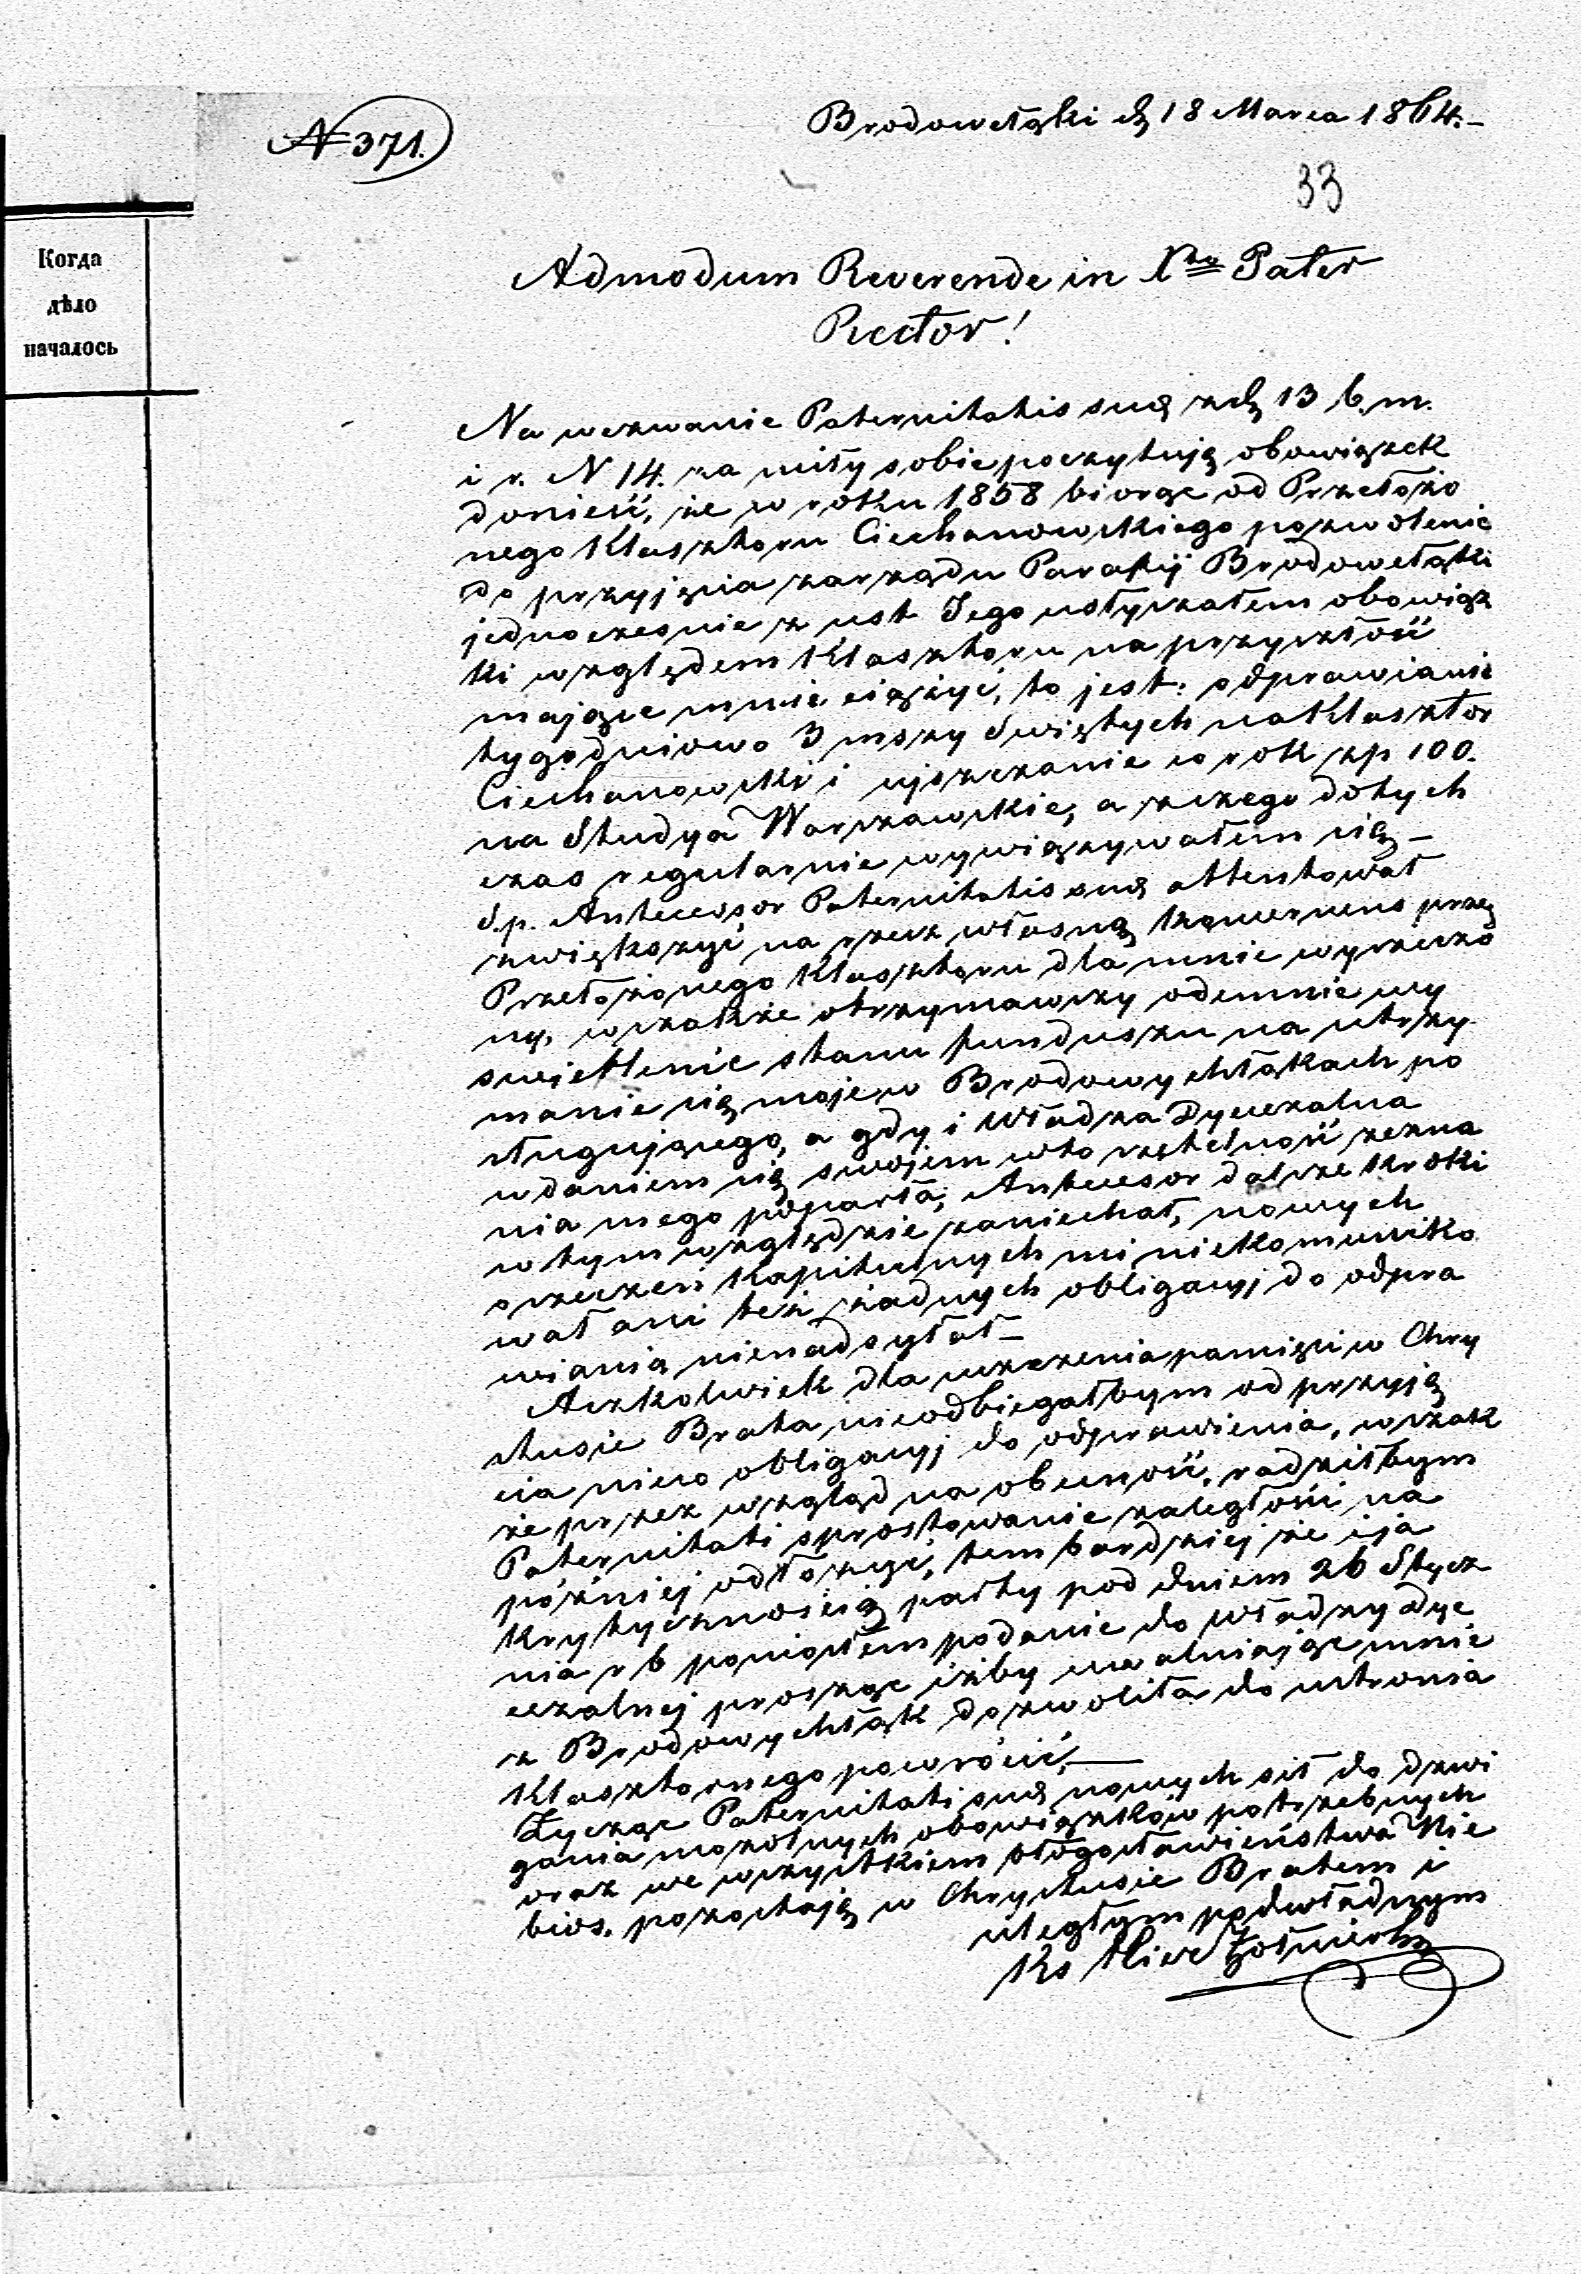 N 371.
Brodowełąki d. 18 Marca 1864.-
33
Когда
дѣло
началось
Admodum Reverende in Xto Pater
Rector!
Na wezwanie Paternitatis suæ z d. 13 b. m.
i r. N 14. za miły sobie poczytuję obowiązek
donieść, że w roku 1858 biorąc od Przełożo
nego Klasztoru Ciechanowskiego pozwolenie
do przyjęcia zarządu Parafij Brodowełąki
jednocześnie z ust Jego usłyszałem obowiąz
ki względem Klasztoru na przyszłość
mające mnie ciążyć, to jest: odprawianie
tygodniowo 3 mszy Swiętych na Klasztor
Ciechanowski i ujszczanie w rok zp 100.
na Studya Warszawskie, a z czego dotych
czas regularnie wywiązywałem się_
S. p. Antecessor Paternitatis suæ attentował
zwiększyć na rzecz własną przez
Przełożonego Klasztoru dla mnie wyrzeczo
ny, wszakże otrzymawszy odemnie wy
swietlenie stanu funduszu na utrzy
manie się moje w Brodowychłąkach po
sługującego, a gdy i Władza Dyecezalna
wdaniem się swojem w to rzetelność zezna
nia mego poparła, Antecesor dalsze kroki
w tym względzie zaniechał, nowych
orzeczeń Kapitulnych mi niekomuniko
wał ani też żadnych obligacyj do odpra
wiania nienadsyłał_
Aczkolwiek dla uczczenia pamięci w Chry
stusie Brata nieodbiegałbym od przyję
cia nieco obligacyj do odprawienia, wszak
że przez wzgląd na obecność, radziłbym
Paternitati sprostowanie zaległości na
później odłożyć, tem bardziej że i ja
krytycznością party pod dniem 26 Stycz
nia r b poniosłem podanie do władzy dye
cezalnej prosząc iżby uwalniając mnie
z Brodowychłąk dozwoliła do ustronia
Klasztornego powrócić,_
Życząc Paternitati suæ nowych sił do dzwi
gania mozolnych obowiązków potrzebnych
oraz we wszystkiem błogosławieństwa Nie
bios, pozostaję w Chrystusie Bratem i
uległym podwładnym
Ks